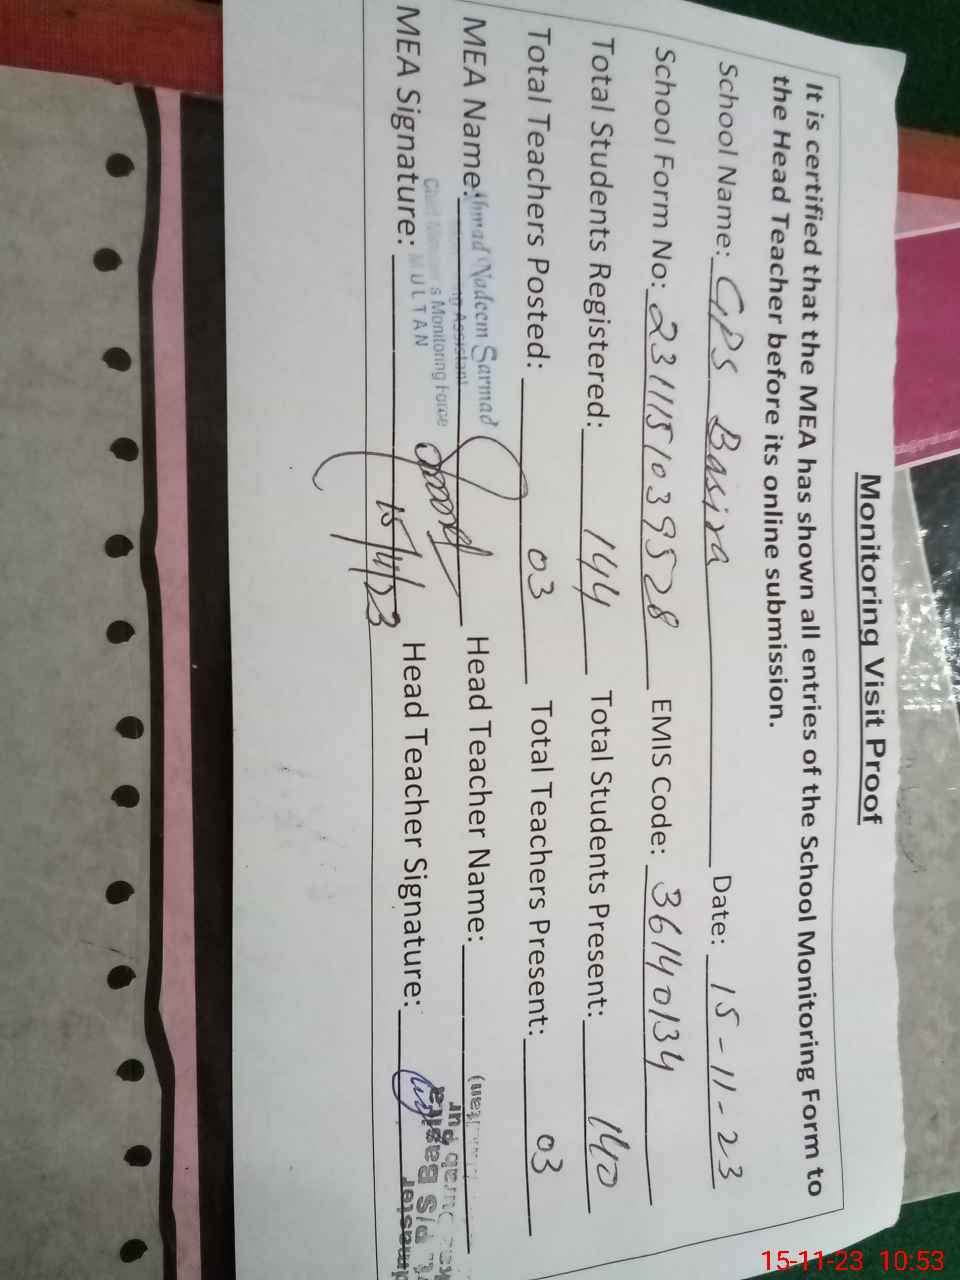 Monitoring Visit Proof
It is certified that the MEA has shown all entries of the School Monitoring Form to
the Head Teacher before its online submission.
School Name: GPS Basira Date: 15-11-23
School Form No: 2311151039528 EMIS Code: 36140134
Total Students Registered: 144 Total Students Present: 140
Total Teachers Posted: 03 Total Teachers Present: 03
MEA Name: Ahmad Nadeem Sarmad Head Teacher Name:
Monitoring Force
MULTAN
MEA Signature: 15/11/23 Head Teacher Signature:
15-11-23 10:53